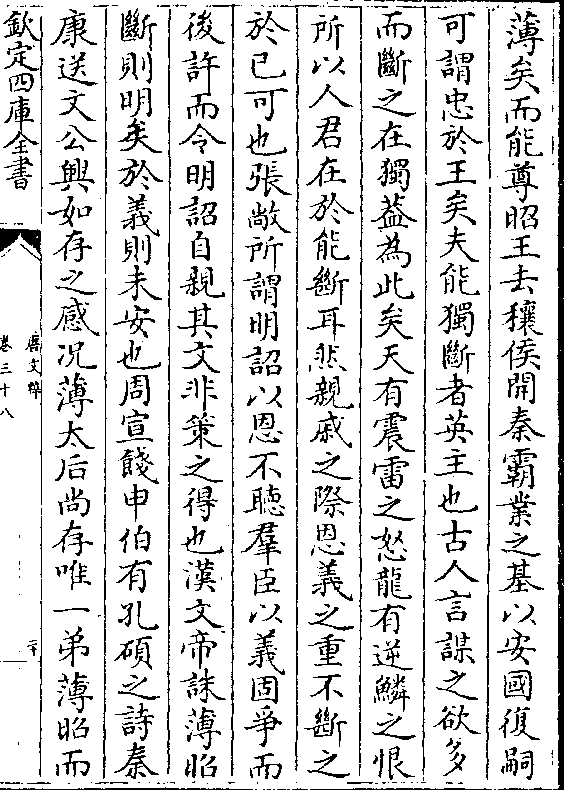 薄矣而能尊昭王去穰侯開秦霸業之基以安國復嗣
可謂忠於王矣夫能獨斷者英主也古人言謀之欲多
而斷之在獨葢為此矣天有震雷之怒龍有逆鱗之恨
所以人君在於能斷耳然親戚之際恩義之重不斷之
於已可也張敞所謂明詔以恩不聴羣臣以義固爭而
後許而令明詔自親其文非策之得也漢文帝誅薄昭
斷則明矣於義則未安也周宣餞申伯有孔碩之詩秦
康送文公興如存之感况薄太后尚存唯一弟薄昭而
欽定四庫全書
唐文粹
卷三十八